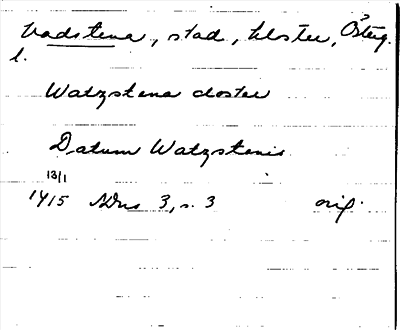 Vadstena, stad, kloster, Österg.
l.
Watzstena closter
Datum Watzstenis
13/1
1415 NDns 3, s. 3 orig.